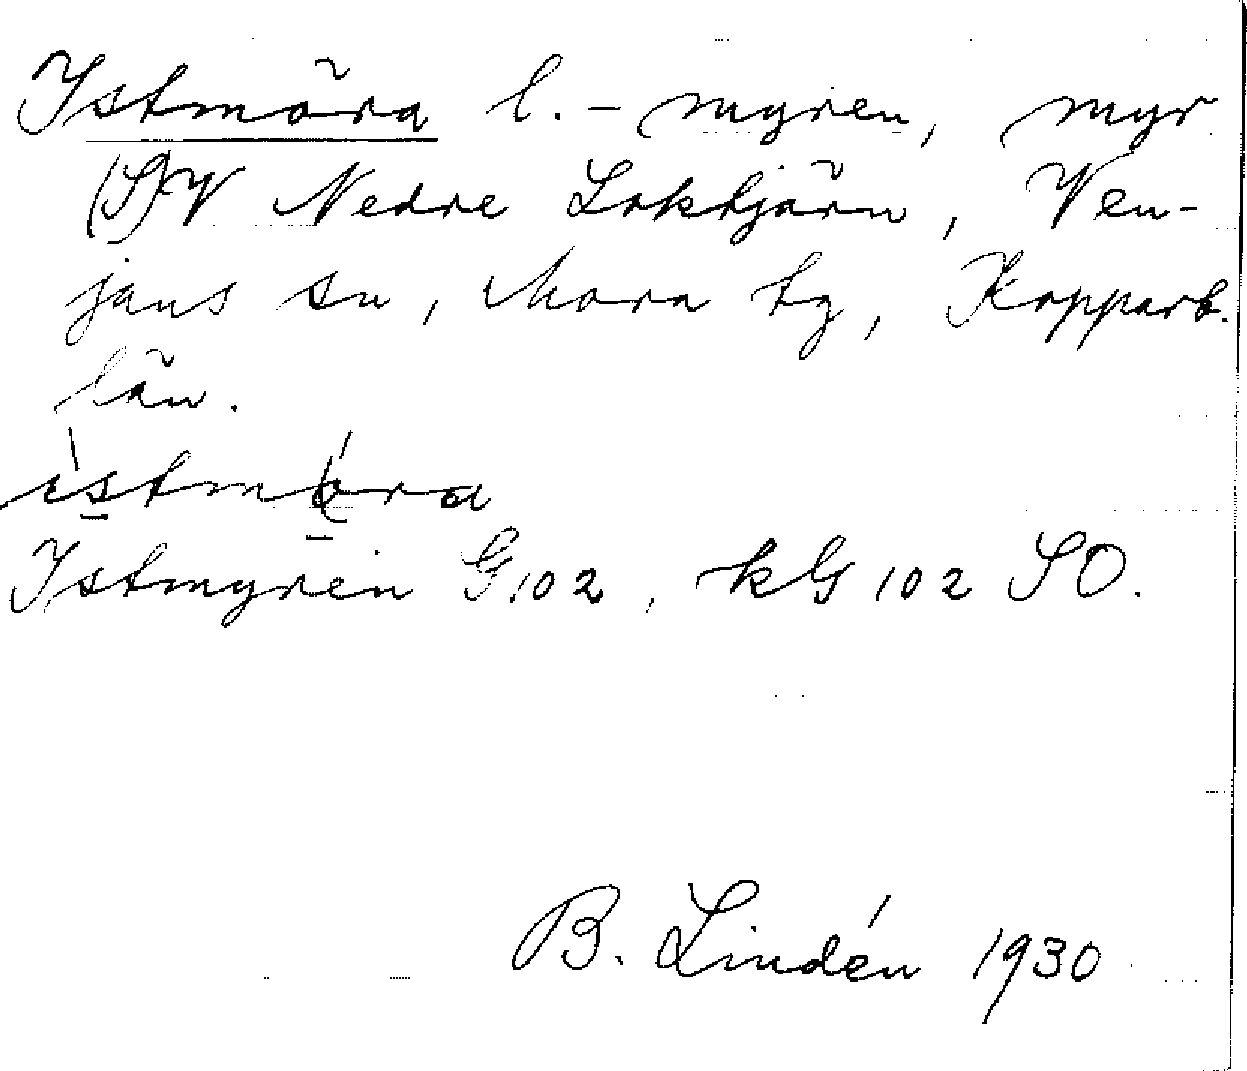 Istmöra l. -myren, myr
(S)V Nedre Loktjärn, Ven-
jans sn, Mora tg, Kopparb.
län.
istmöra
Istmyren G102, kG 102 SO.
B. Lindén 1930